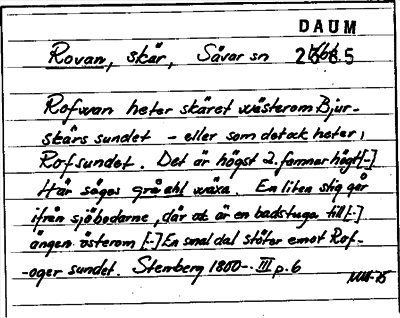 DAUM
Rovan, skär, Sävar sn 2
Rofwan heter skäret wästerom Bjur-
skärs sundet - eller som det ock heter,
Rofsundet. Det är högst 2. famnar högt [-]
Här säges gråahl wäxa. En liten stig går
ifrån sjöbodarne, där ock är en badstuga till [-]
ängen österom [-] En smal dal stöter emot Rof-
-oger sundet. Stenberg 1800-. III p. 6